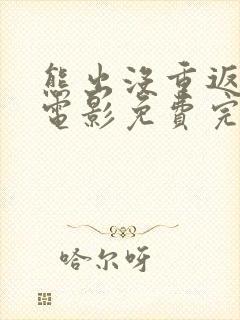 熊出没重返
电影免费完
哈尔呀